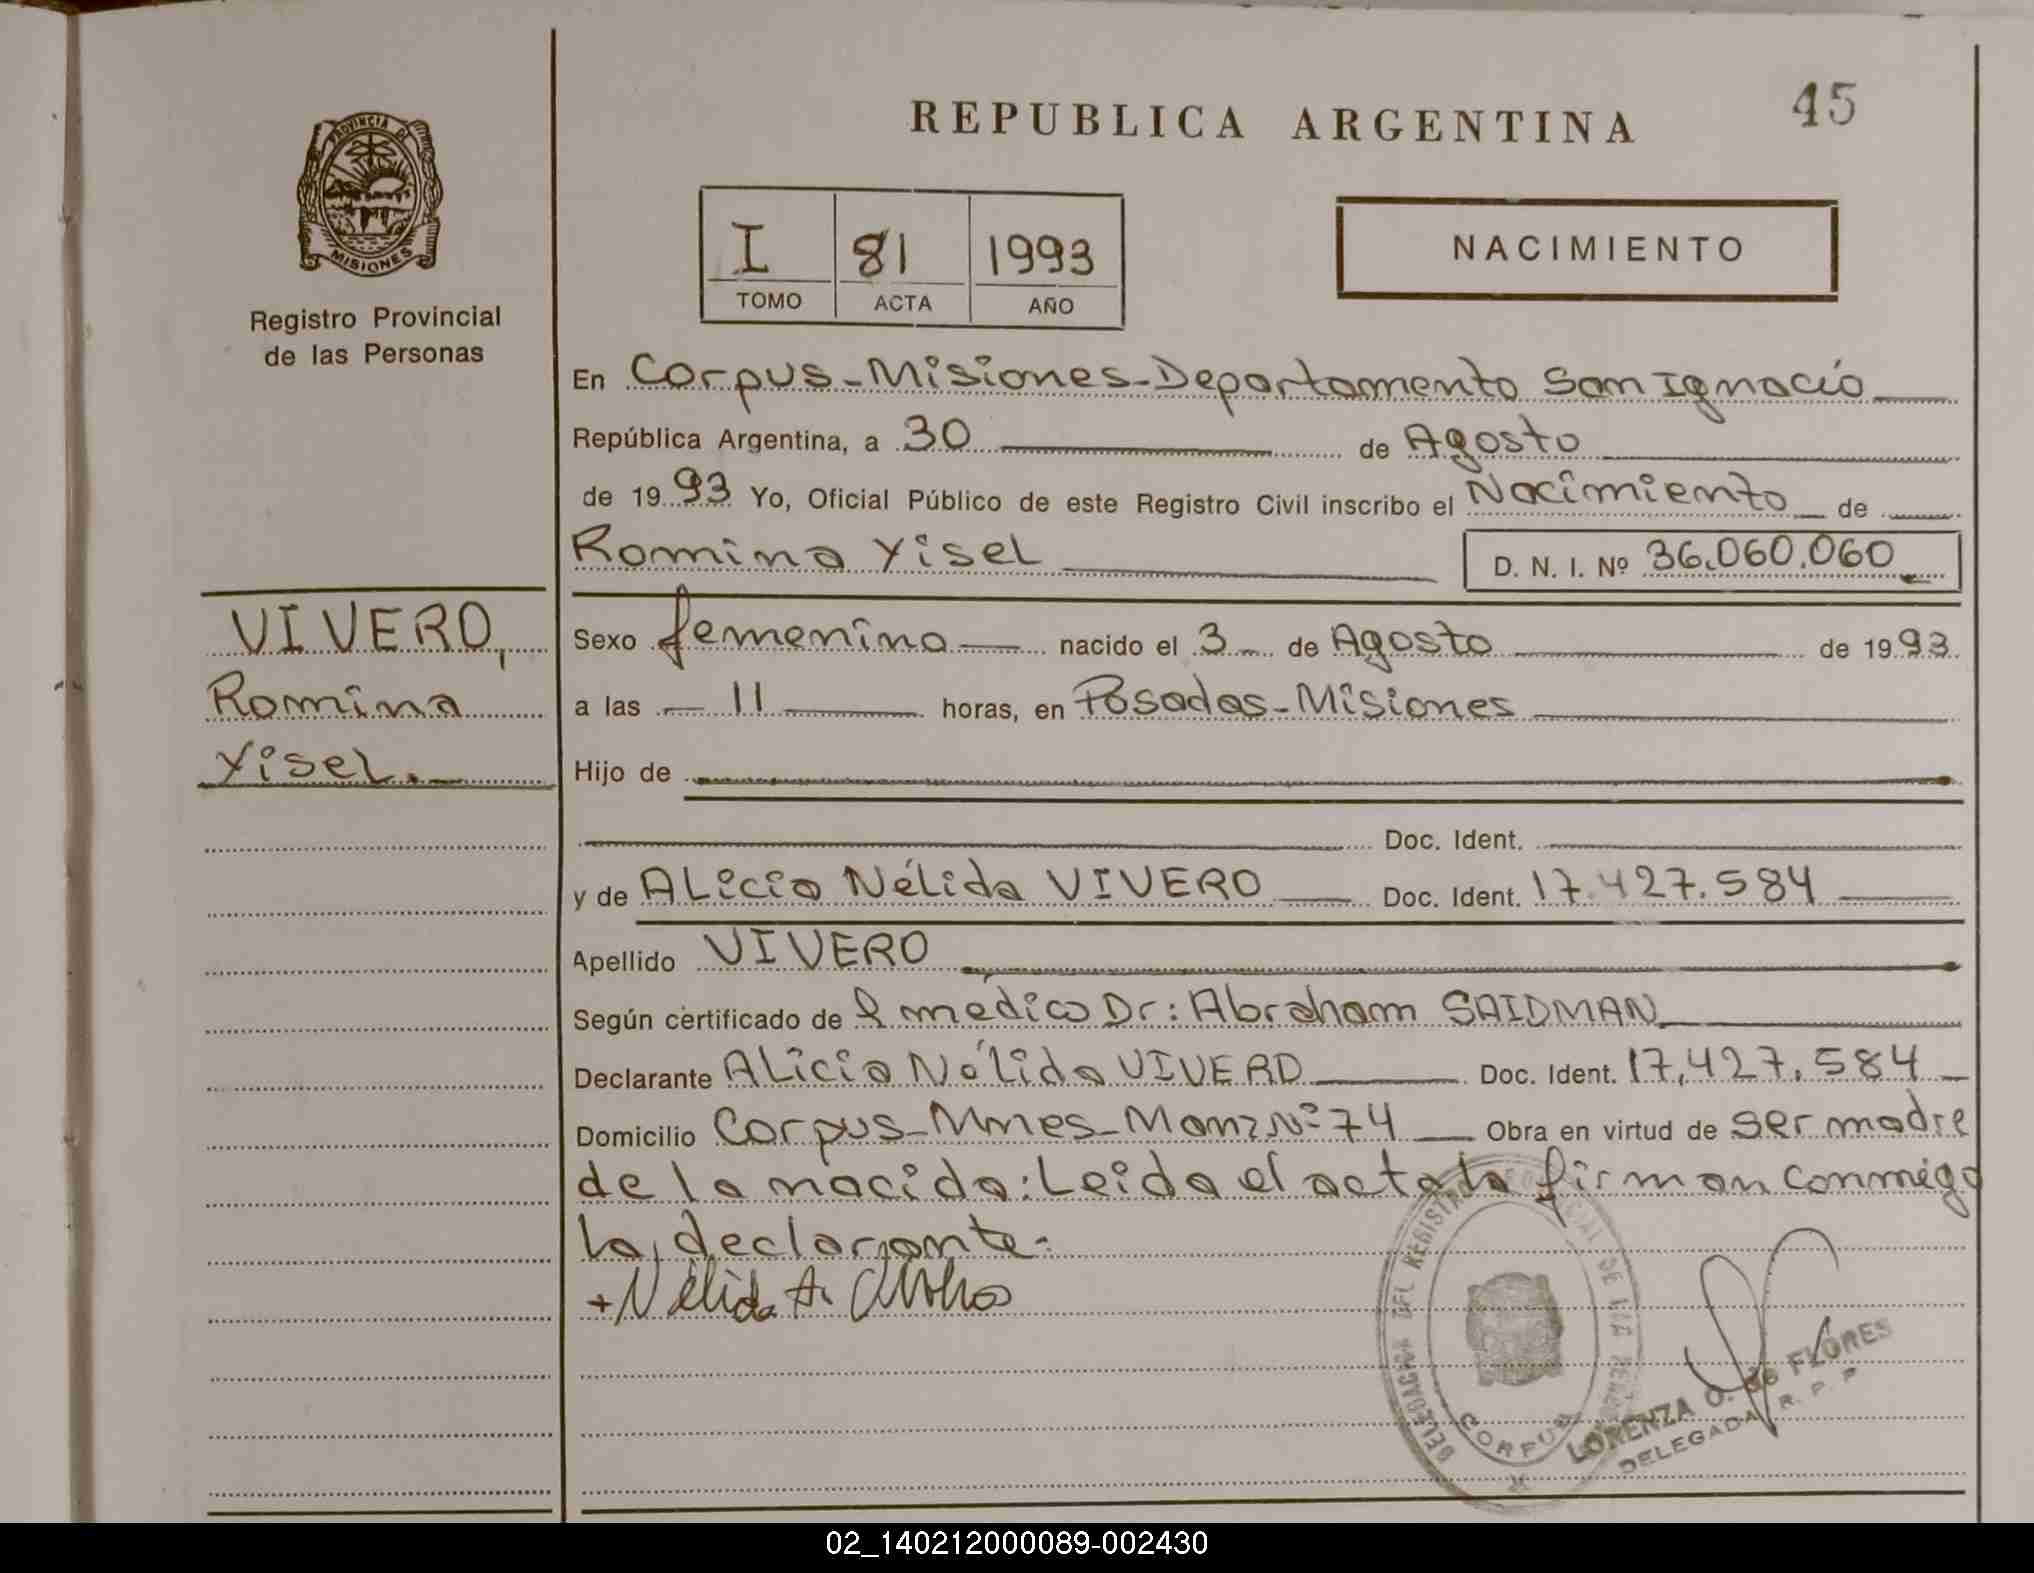 PROVINCIA DE
MISIONES
Registro Provincial
de las Personas
VIVERO,
Romina
Yisel.
REPUBLICA ARGENTINA
45
I 81 1993
TOMO ACTA AÑO
NACIMIENTO
En Corpus-Misiones-Departamento San Ignacio
República Argentina, a 30 de Agosto
de 1993 Yo, Oficial Público de este Registro Civil inscribo el Nacimiento de
Romina Yisel D. N. I. Nº 36.060.060
Sexo femenino nacido el 3 de Agosto de 1993
a las 11 horas, en Posadas-Misiones
Hijo de
Doc. Ident.
y de Alicia Nélida VIVERO Doc. Ident. 17.427.584
Apellido VIVERO
Según certificado de l medico Dr: Abraham SAIDMAN
Declarante Alicia Nélida VIVERO Doc. Ident. 17.427.584
Domicilio Corpus-Mnes-Manz Nº 74 Obra en virtud de ser madre
de la nacida: Leida el acta la firman conmigo
la declarante-
+ Nélida A.
DELEGACION DEL REGISTRO PROVINCIAL DE LAS PERSONAS
CORPUS
LORENZA O. de FLORES
DELEGADA R. P. P.
02_140212000089-002430